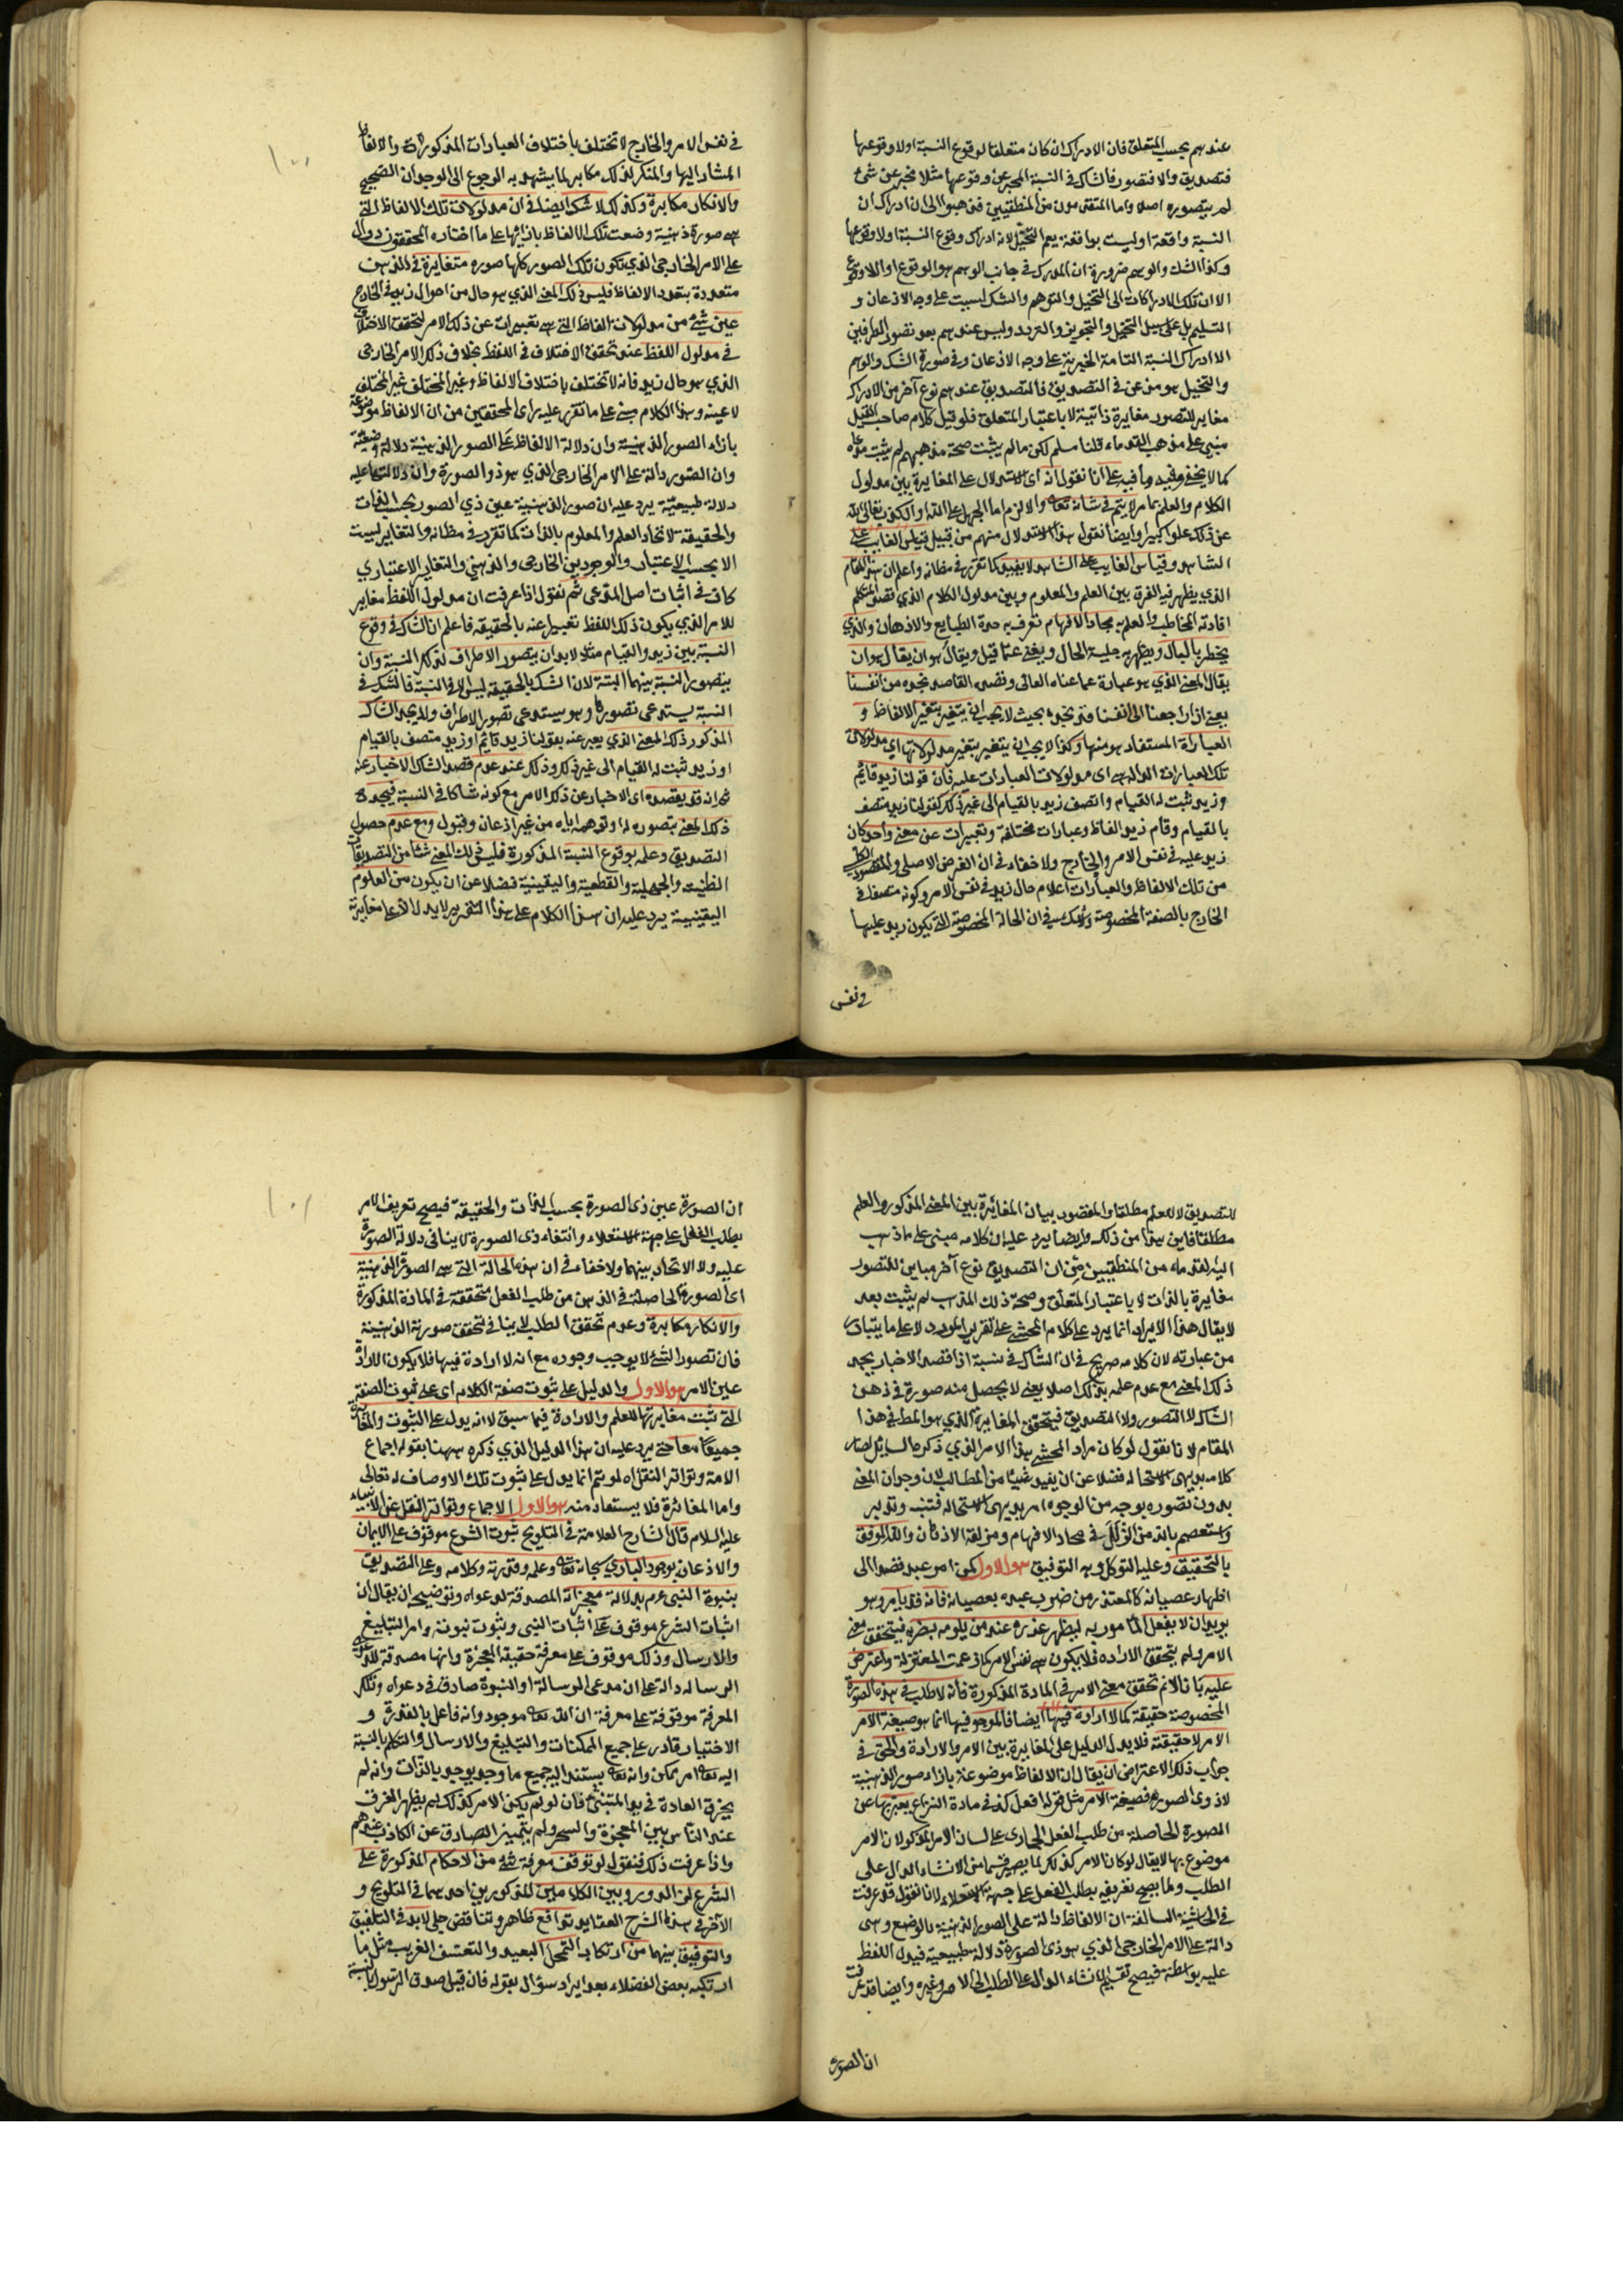 عندهم بحسب المتعلق فان الادراك ان كان متعلقا لوقوع النسبة او لا وقوعها
فتصديق والا فتصور فالشاك في النسبة المخبر عن وقوعها مثلا مخبر عن شئ
لم يتصوره اصلا واما المتقدمون من المنطقيين فذهبوا الى ان ادراك ان
النسبة واقعة او ليست بواقعة يعم التخيل لانه ادراك وقوع النسبة او لا وقوعها
وكذا الشك والوهم ضرورة ان المدرك في جانب الوهم هو الوقوع او اللاوقوع
الا ان تلك الادراكات الى التخيل والتوهم والشك ليست على وجه الاذعان و
التسليم بل على سبيل التخيل والتجويز والتردد وليس عندهم بعد تصور الطرفين
الا ادراك النسبة التامة الخبرية على وجه الاذعان وفي صورة الشك والوهم
والتخييل هو من عن في التصديق فالتصديق عندهم نوع آخر من الادراك
مغاير للتصور مغايرة ذاتية لا باعتبار المتعلق فلو قيل كلام صاحب القيل
مبنى على مذهب القدماء قلنا مسلم لكن ما لم يثبت صحة مذهبهم لم يثبت مدعاه
كما لا يخفى وفيه ما فيه على انا نقول انه اى الاستدلال على المغايرة بين مدلول
الكلام والعلم بما مر لا يتم في شانه تعالى والا لزم اما الجهل على الله او الكذب تعالى الله
عن ذلك علوا كبيرا وايضا نقول هذا الاستدلال منهم من قبيل قياس الغايب على
الشاهد وقياس الغايب على الشاهد لا يفيد كما تقرر في مظانه واعلم ان هذا المقام
الذي يظهر فيه الفرق بين العلم والمعلوم وبين مدلول الكلام الذي قصد المتكلم
افادته المخاطب والعلم به محاد الافهام تعرف به حدة الطبايع والاذهان والذي
يخطر بالبال ويظهر به جلية الحال ويغنى عما قيل ويقال هو ان يقال هو ان
يقال المعنى الذي هو عبارة عما عناه العانى وقصده القاصد نجده من انفسنا
يعنى اذا راجعنا الى انفسنا قد نجده بحيث لا يجب ان يتغير بتغير الالفاظ و
العبارات المستفاد هو منها وكذا لا يجب ان يتغير بتغير مدلولاتها اى مدلولات
تلك العبارات الدالة هي اى مدلولات العبارات عليه فان قولنا زيد قائم
وزيد ثبت له القيام واتصف زيد بالقيام الى غير ذلك كقولنا زيد متصف
بالقيام وقام زيد الفاظ وعبارات مختلفة وتعبيرات عن معنى واحد كان
زيد عليه في نفس الامر والخارج ولا خفاء في ان الغرض الاصلى والمقصود الكلى
من تلك الالفاظ والعبارات اعلام حال زيد في نفس الامر وكونه متصفا في
الخارج بالصفة المخصوصة ولا شك في ان الحالة المخصوصة التي يكون زيد عليها
في نفس
في نفس الامر والخارج لا تختلف باختلاف العبارات المذكورة والالفاظ
المشار اليها والمنكر لذلك مكابر لما يشهد به الرجوع الى الوجدان الصحيح
والانكار مكابرة وكذلك لا شك ايضا في ان مدلولات تلك الالفاظ التي
هي صورة ذهنية وضعت تلك الالفاظ بازائها على ما اختاره المحققون دوال
على الامر الخارجى الذي تكون تلك الصور كلها صوره متغايرة في الذهن
متعددة بتعدد الالفاظ فليس ذلك المعنى الذي هو حال من احوال زيد في الخارج
عين شئ من مدلولات الفاظ التي هي تعبيرات عن ذلك الامر لتحقق الاختلاف
في مدلول اللفظ عند تحقق الاختلاف في اللفظ بخلاف ذلك الامر الخارجى
الذي هو حال زيد فانه لا تختلف باختلاف الالفاظ وغير المختلف غير المختلف
لا عينه وهذا الكلام مبنى على ما تقرر عليه راى المحققين من ان الالفاظ موضوعة
بازاء الصور الذهنية وان دلالة الالفاظ على الصور الذهنية دلالة وضعية
وان الصور دالة على الامر الخارجى الذي هو ذو الصورة وان دلالتها عليه
دلالة طبيعية يرد عليه ان صور الذهنية عين ذي الصور بحسب الذات
والحقيقة لاتحاد العلم والمعلوم بالذات كما تقرر في مظانه والتغاير ليست
الا بحسب الاعتبار والوجودين الخارجى والذهني والتغاير الاعتباري
كاف في اثبات اصل المدعى ثم نقول اذا عرفت ان مدلول اللفظ مغاير
للامر الذي يكون ذلك اللفظ تعبيرا عنه بالحقيقة فاعلم ان الشاك في وقوع
النسبة بين زيد والقيام مثلا لا بد ان يتصور الاطراف لتلك النسبة وان
يتصور النسبة بينهما البتة لان الشك بالحقيقة ليس الا في النسبة فالشك في
النسبة يستدعى تصورها وهو يستدعى تصور الاطراف ولا يجد الشاك
المذكور ذلك المعنى الذي يعبر عنه بقولنا زيد قائم او زيد متصف بالقيام
او زيد ثبت له القيام الى غير ذلك وذلك عند عدم قصد الشاك الاخبار عنه
ثم انه قد يقصده اى الاخبار عن ذلك الامر مع كونه شاكا في النسبة فيجد
ذلك المعنى بتصوره له او توهمه اياه من غير اذعان وقبول ومع عدم حصول
التصديق وعلمه بوقوع النسبة المذكورة فليس ذلك المعنى شئا من التصديقات
الظنية والجهلية والقطعية واليقينية فضلا عن ان يكون من العلوم
اليقينية يرد عليه ان هذا الكلام على هذا التقرير لا يدل الا على مغايرة
للتصديق لا للعلم مطلقا والمقصود بيان المغائرة بين المعنى المذكور والعلم
مطلقا فاين هذا من ذلك وايضا يرد عليه ان كلامه مبنى على ما ذهب
اليه القدماء من المنطقيين من ان التصديق نوع آخر مباين للتصور
مغايرة بالذات لا باعتبار المتعلق وصحة ذلك المذهب لم يثبت بعد
لا يقال هذا الايراد انما يرد على كلام المحشى على تقرير المورد لا على ما يتبادر
من عبارته لان كلامه صريح في ان الشاك في نسبة اذا قصد الاخبار يجد
ذلك المعنى مع عدم علمه بذلك اصلا يعنى لا يحصل منه صورة في ذهن
الشاك لا التصور ولا التصديق فيتحقق المغايرة الذي هو المط في هذا
المقام لانا نقول لو كان مراد المحشى هذا الامر الذي ذكره السائل لصار
كلامه بديهى الاستحالة فضلا عن ان يفيد شيئا من المطالب لان وجدان المعنى
بدون تصوره بوجه من الوجوه امر بديهى الاستحالة فتنبه وتدبر
واستعصم بالله من الزلل في محاد الافهام ومزلقة الاذهان والله الموفق
بالتحقيق وعليه التوكل وبه التوفيق هو الاول كمن امر عبده قصدا الى
اظهار عصيانه كالمعتذر من ضرب عبده بعصيانه فانه قد يأمره وهو
يريد ان لا يفعل المأمور به ليظهر عذره عند من يلومه بضربه فيتحقق معنى
الامر ولم يتحقق الاراده فلا يكون هي نفس الامر كما زعمت المعتزلة واعترض
عليه بانا لا نم تحقق معنى الامر في المادة المذكورة فانه لا طلب في هذه الصورة
المخصوصة حقيقة كما لا ارادة فيها ايضا فالموجود فيها انما هو صيغة الامر
الامر لا حقيقته فلا يدل الدليل على المغايرة بين الامر والارادة والحق في
جواب ذلك الاعتراض ان يقال ان الالفاظ موضوعة بازاء صور الذهنية
لا ذوى الصورة فصيغة الامر مثل قوله افعل كذا في مادة النزاع يعبر بها عن
الصورة الحاصلة من طلب الفعل الجارى على لسان الامر المذكور لان الامر
موضوع بها لا يقال لو كان الامر كذلك لما يصير قسما من الانشاء الدال على
الطلب ولما يصح تعريفه بطلب الفعل على جهة الاستعلاء لانا نقول قد عرفت
في الحاشية السالفة ان الالفاظ دالة على الصور الذهنية بالوضع وهى
دالة على الامر الخارجى الذي هو ذى الصورة دلالة طبيعية فيدل اللفظ
عليه بواسطته فيصح تقسيم الانشاء الدال على الطلب الى الامر وغيره وايضا قد عرفت
ان الصورة
ان الصورة عين ذى الصورة بحسب الذات والحقيقة فيصح تعريف الامر
بطلب الفعل على جهة الاستعلاء وانتفاء ذى الصورة لا ينافى دلالة الصورة
عليه ولا الاتحاد بينهما ولا خفاء في ان هذه الحالة التي هي الصورة الذهنية
اى الصورة الحاصلة في الذهن من طلب الفعل متحققة في المادة المذكورة
والانكار مكابرة وعدم تحقق الطلب لا ينافى تحقق صورته الذهنية
فان تصور الشئ لا يوجب وجوده مع انه لا ارادة فيها فلا يكون الارادة
عين الامر هو الاول والدليل على ثبوت صفة الكلام اى على ثبوت الصفة
التي تثبت مغايرتها للعلم والارادة فيما سبق لا انه يدل على الثبوت والمغايرة
جميعا معا حتى يرد عليه ان هذا الدليل الذي ذكره ههنا بقوله اجماع
الامة وتواتر النقل اه لو تم انما يدل على ثبوت تلك الاوصاف له تعالى
واما المغائرة فلا يستفاد منه هو الاول الاجماع وتواتر النقل عن الانبياء
عليه السلام قال الشارح العلامة في التلويح ثبوت الشرع موقوف على الايمان
والاذعان بوجود البارى سبحانه تعالى وعلمه وقدرته وكلامه وعلى التصديق
بنبوة النبى عم بدلالة معجزاته المصدقة لدعواه وتوضيحه ان يقال ان
اثبات الشرع موقوف على اثبات النبى وثبوت نبوته وامر التبليغ
والارسال وذلك موقوف على معرفة حقيقة المعجزة وانها مصدقة للدعوى
الرساله دالة على ان مدعى الرسالة او النبوة صادق في دعواه وتلك
المعرفة موقوفة على معرفة ان الله تعالى موجود وانه فاعل بالقدرة و
الاختيار قادر على جميع الممكنات والتبليغ والارسال والتكلم بالنسبة
اليه تعالى امر ممكن وانه تعالى يستند اليه جميع ما وجد يوجد بالذات وانه لم
يخرق العادة في يد المتنبئ فان لو لم يكن الامر كذلك لم يظهر الفرق
عند الناس بين المعجزة والسحر ولم يتميز الصادق عن الكاذب عندهم
واذا عرفت ذلك فنقول لو توقف معرفة شئ من الاحكام المذكورة على
الشرع لزم الدور وبين الكلامين المذكورين احدهما في التلويح و
الآخر في هذا الشرح العقايد تدافع ظاهر وتناقض جلى لا بد في التلفيق
والتوفيق بينهما من ارتكاب التمحل البعيد والتعسف الغريب مثل ما
ارتكبه بعض الفضلاء بعد ايراد سؤال بقوله فان قيل صدق الرسول بالنسبة